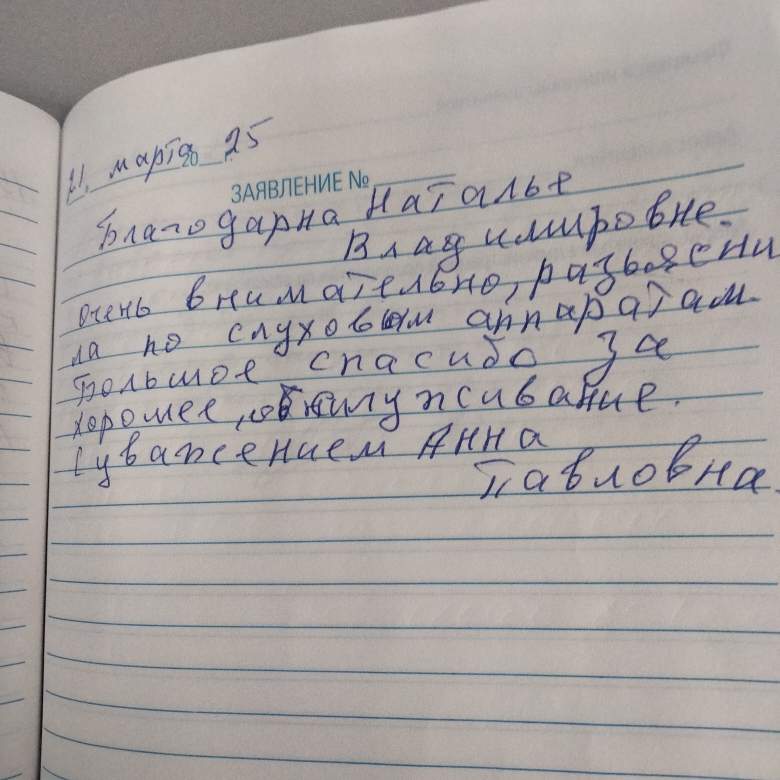 11. марта 20 25
ЗАЯВЛЕНИЕ №
Благодарна Наталье
Владимировне.
очень внимательно, разъясни
ла по слуховым аппаратам.
Большое спасибо за
хорошее, обслуживание.
С уважением Анна
Павловна.